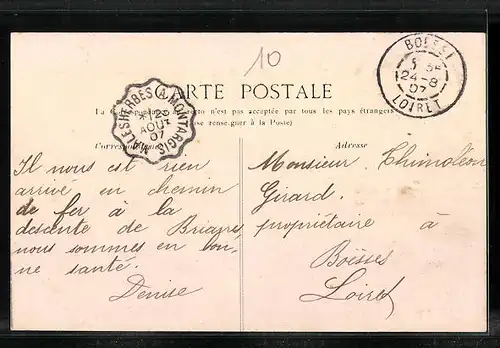 10
BOESSE
24-8
07
LOIRET
MALESHERBES A MONTARGIS
AOUT
07
CARTE POSTALE
La recto n'est pas acceptée par tous les pays étrangers
(se renseigner à la Poste)
Correspondance
Adresse
Il nous est rien
arrivé en chemin
de fer à la
descente de Briare
nous sommes en bon-
ne santé.
Denise
Monsieur Thimoléon
Girard
propriétaire à
Boësses
Loiret